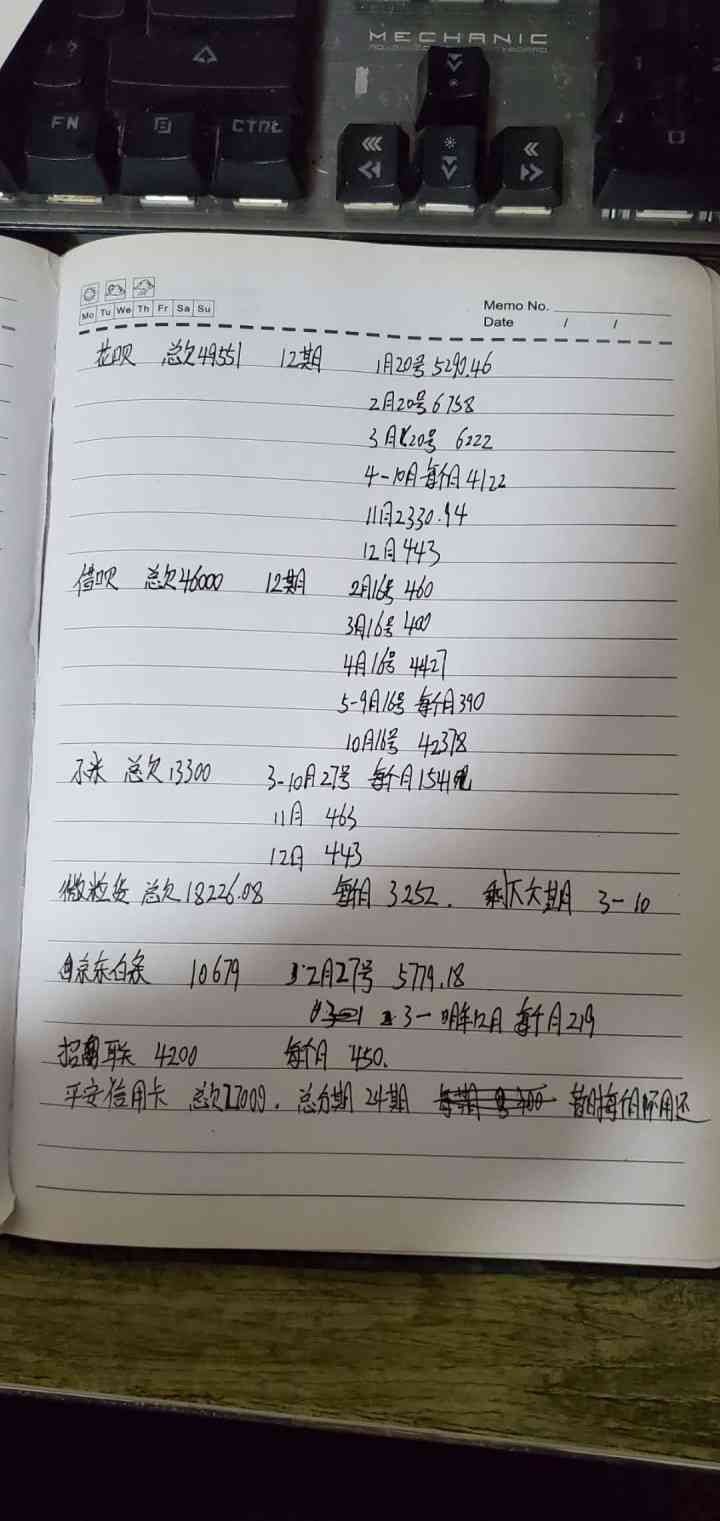 MECHANIC
FN
CTRL
Mo Tu We Th Fr Sa Su
Memo No.
Date / /
花呗 总欠49551 12期 1月20号 5290.46
2月20号 6758
3月20号 6222
4-10月每个月 4122
11月 2330.94
12月 443
借呗 总欠46000 12期 2月16号 460
3月16号 400
4月16号 4427
5-9月16号 每个月390
10月16号 42378
小米 总欠13300 3-10月27号 每个月1541
11月 463
12月 443
微粒贷 总欠18226.08 每个月 3252. 剩下六期 3-10
京东白条 10679 2月27号 5779.18
3-明年12月 每个月 219
招商联 4200 每个月 450.
平安信用卡 总欠27009. 总分期 24期 暂时每个月不用还